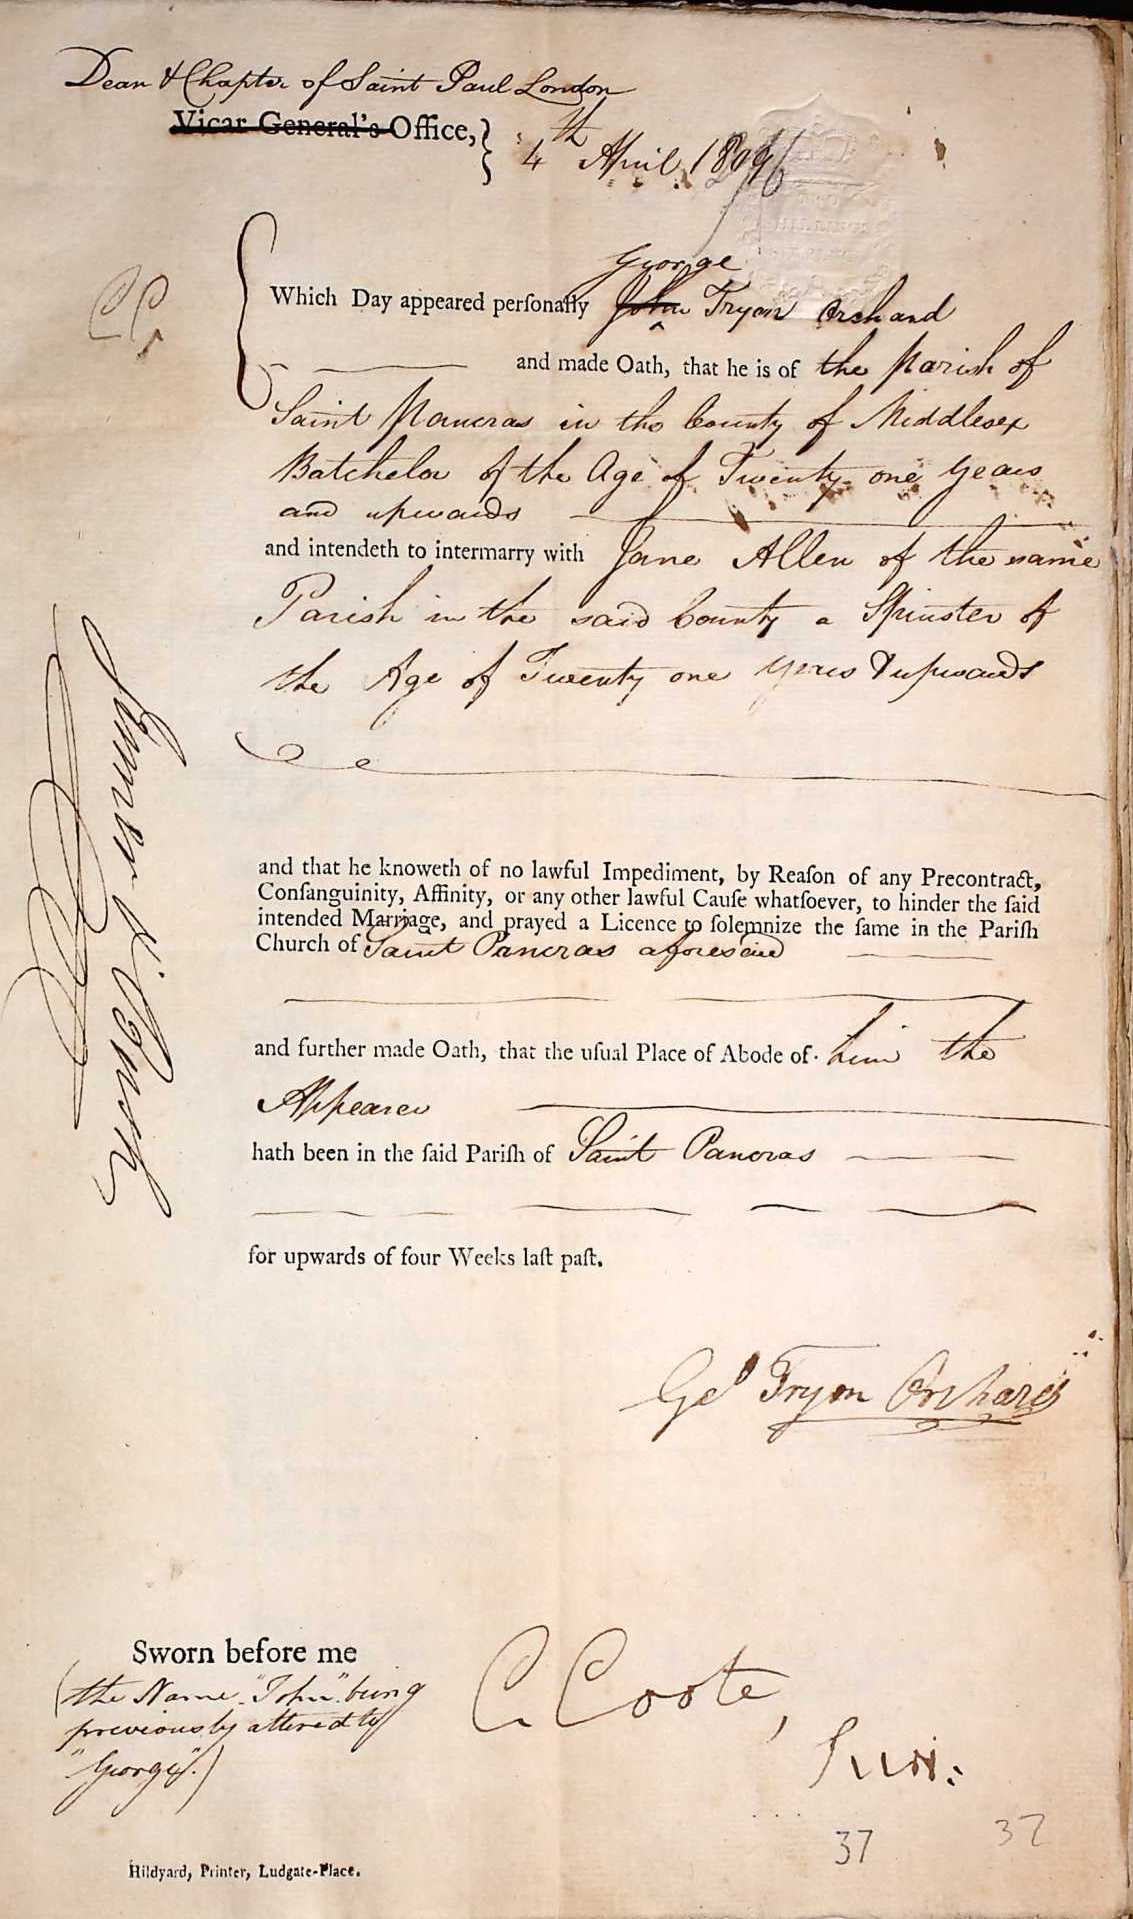 Dean & Chapter of Saint Paul London
Vicar General's Office,
4th April
George
Which Day appeared personally John Tryon Orchard
and made Oath, that he is of the Parish of
Saint Pancras in the County of Middlesex
Batchelor of the Age of Twenty one years
and upwards
and intendeth to intermarry with Jane Allen of the same
Parish in the said County a Spinster of
the Age of Twenty one years & upwards
and that he knoweth of no lawful Impediment, by Reaſon of any Precontract,
Conſanguinity, Affinity, or any other lawful Cauſe whatſoever, to hinder the ſaid
intended Marriage, and prayed a Licence to ſolemnize the ſame in the Pariſh
Church of Saint Pancras aforesaid
and further made Oath, that the uſual Place of Abode of him the
Appearer
hath been in the ſaid Pariſh of Saint Pancras
for upwards of four Weeks laſt paſt.
Geo Tryon Orchard
Sworn before me
(the Name "John" being
previously altered to
"George".)
C Coote,
Surr:
37
37
Hildyard, Printer, Ludgate-Place.